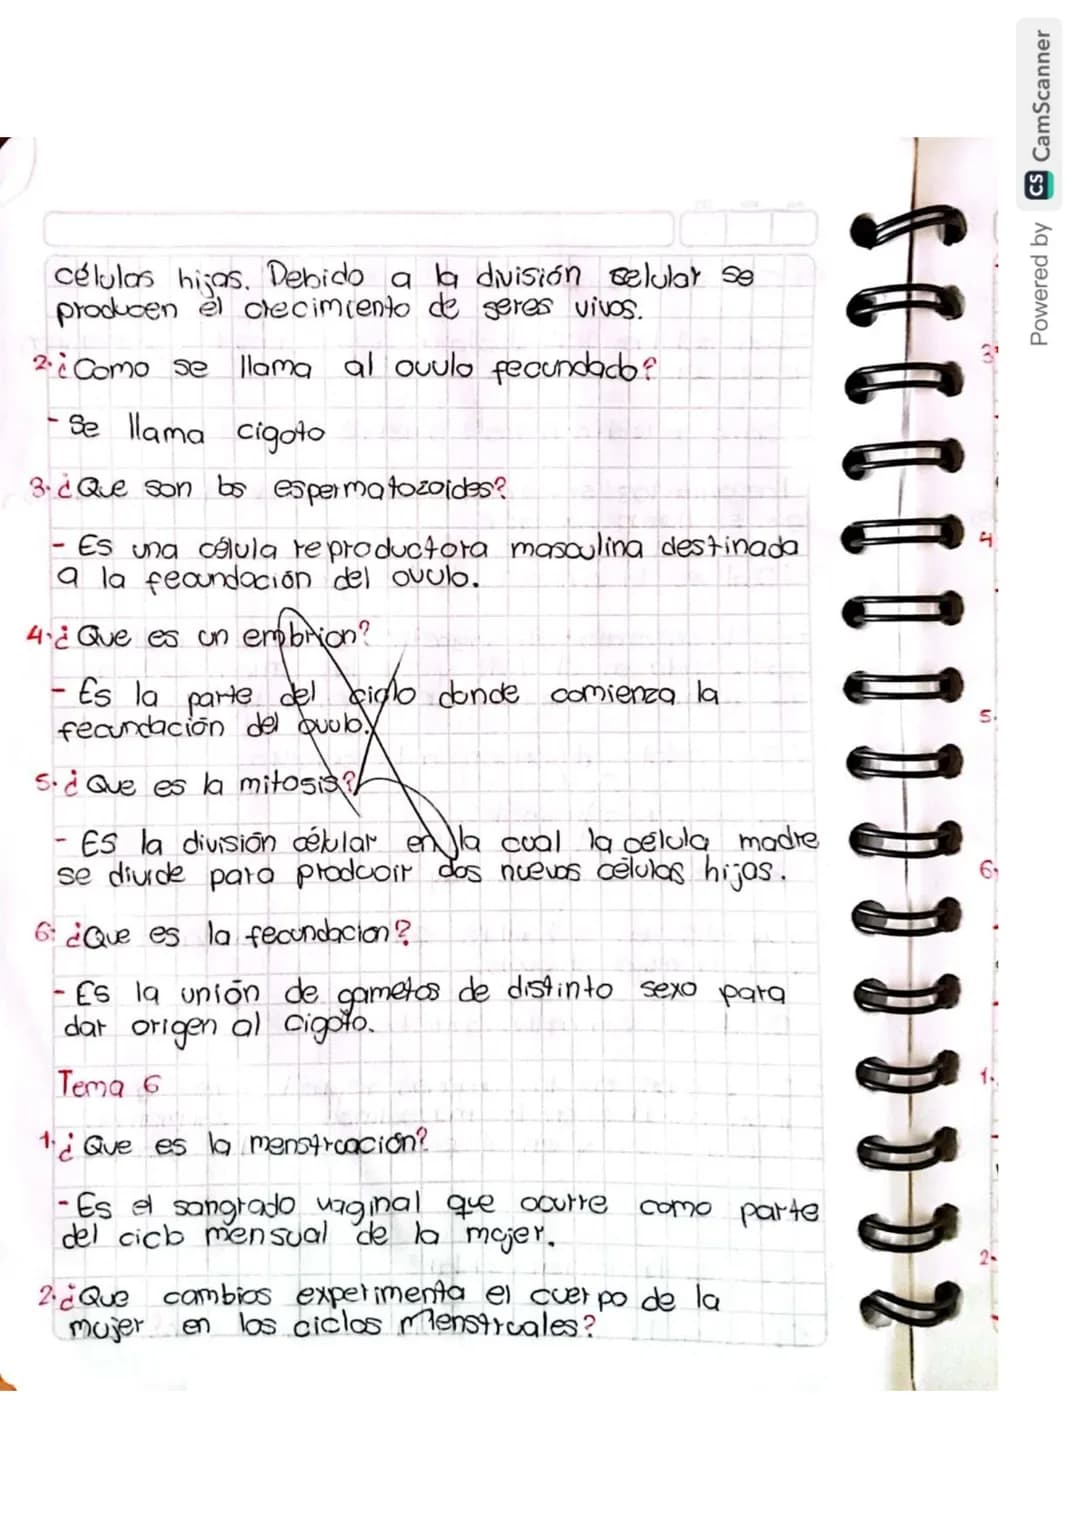 células hijas. Debido a la división selular se
producen el crecimiento de seres vivos.
2.¿Como se llama al ovulo fecundado?
- Se llama cigoto
3.¿Que son los espermatozoides?
- Es una célula reproductora masculina destinada
a la fecundación del ovulo.
4.¿Que es un embrion?
- Es la parte del ciglo donde comienza la
fecundación del ovulo.
5.¿Que es la mitosis?
- ES la división célular en la cual la célula madre
se divide para producir dos nuevas células hijas.
6. ¿Que es la fecundacion?
- Es la unión de gametos de distinto sexo para
dar origen al cigoto.
Tema 6
1.¿Que es la menstruación?
- Es el sangrado vaginal que ocurre como parte
del ciclo mensual de la mujer.
2.¿Que cambios experimenta el cuerpo de la
mujer en los ciclos menstruales?
3.
4
5.
6.
1.
2.
Powered by CS CamScanner